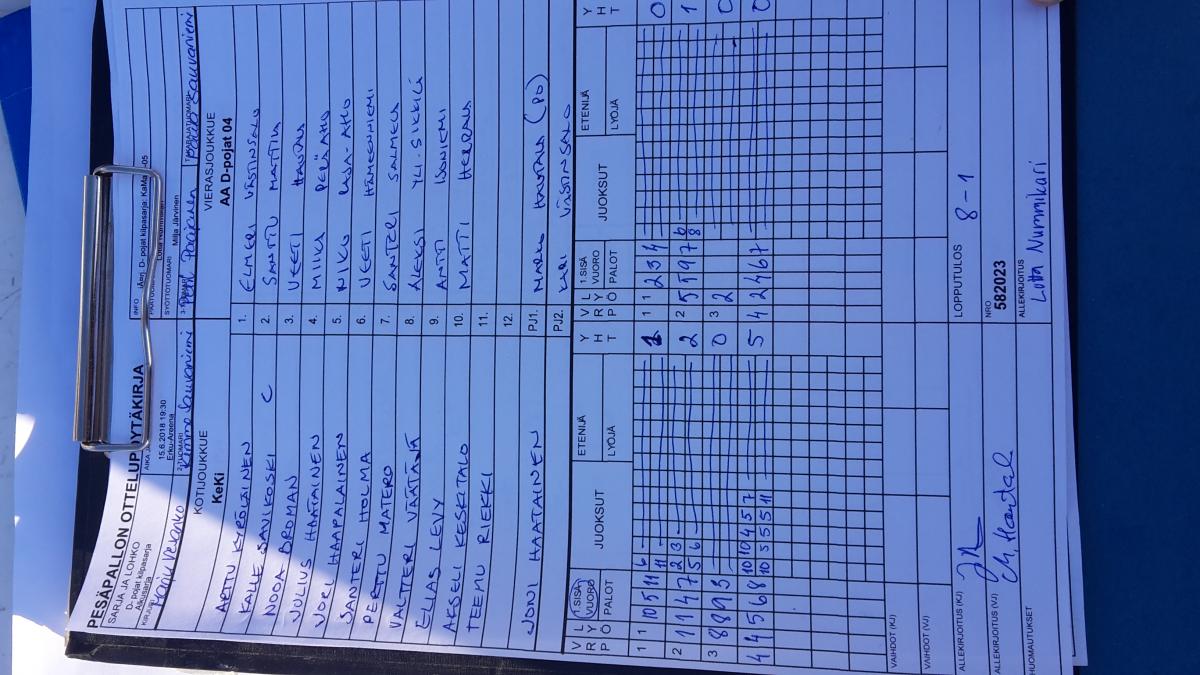 PESÄPALLON OTTELUPÖYTÄKIRJA
SARJA JA LOHKO
D- pojat kilpasarja
Alkusarja
AIKA JA
15.6.2018 19:30
Erku-Areena
INFO
iAeri: D- pojat kilpasarja: KaMa
-05
SYÖTTÖTUOMARI
Milja Järvinen
KIRJUR
2-TUOMARI
Kimmo Sauvaniemi
KOTIJOUKKUE
KeKi
VIERASJOUKKUE
AA D-pojat 04
ARTTU KYRÖLÄINEN 1. ELMERI VÄSTINSALO
KALLE SAVIKOSKI C 2. SANTTU MATTILA
NOOA BROMAN 3. VEETI HAUTALA
JULIUS HAATAINEN 4. MIIKA PERÄAHO
JORI HAAPALAINEN 5. NIKO
SANTERI HOLMA 6. VEETI HÄMEENNIEMI
PERTTU MATERO 7. SANTERI SALMELA
VALTTERI VÄÄTÄJÄ 8. ALEKSI YLI-SIKKILÄ
ELIAS LEVY 9. ANTTI ISONIEMI
AKSELI KESKITALO 10. MATTI HERRALA
TEEMU RIEKKI 11.
12.
JONI HAATAINEN PJ1. MARKO HAUTALA (PD)
PJ2. KARI VÄSTINSALO
V R Ö L Y P 1.SISÄ VUORO PALOT JUOKSUT ETENIJÄ LYÖJÄ Y H T V R Ö L Y P 1.SISÄ VUORO PALOT JUOKSUT ETENIJÄ LYÖJÄ Y H T
1 1 10 5 11 6 11 1 1 1 2 3 4 0
2 1 1 4 7 2 3 5 6 2 2 5 5 9 7 6 8 1
3 8 8 9 3 0 3 2 0
4 4 5 6 8 10 10 4 5 7 10 5 5 5 11 5 4 2 4 6 7 0
VAIHDOT (KJ)
VAIHDOT (VJ)
ALLEKIRJOITUS (KJ)
LOPPUTULOS 8-1
ALLEKIRJOITUS (VJ)
NRO
582023
HUOMAUTUKSET
ALLEKIRJOITUS
Lotta Nummikari